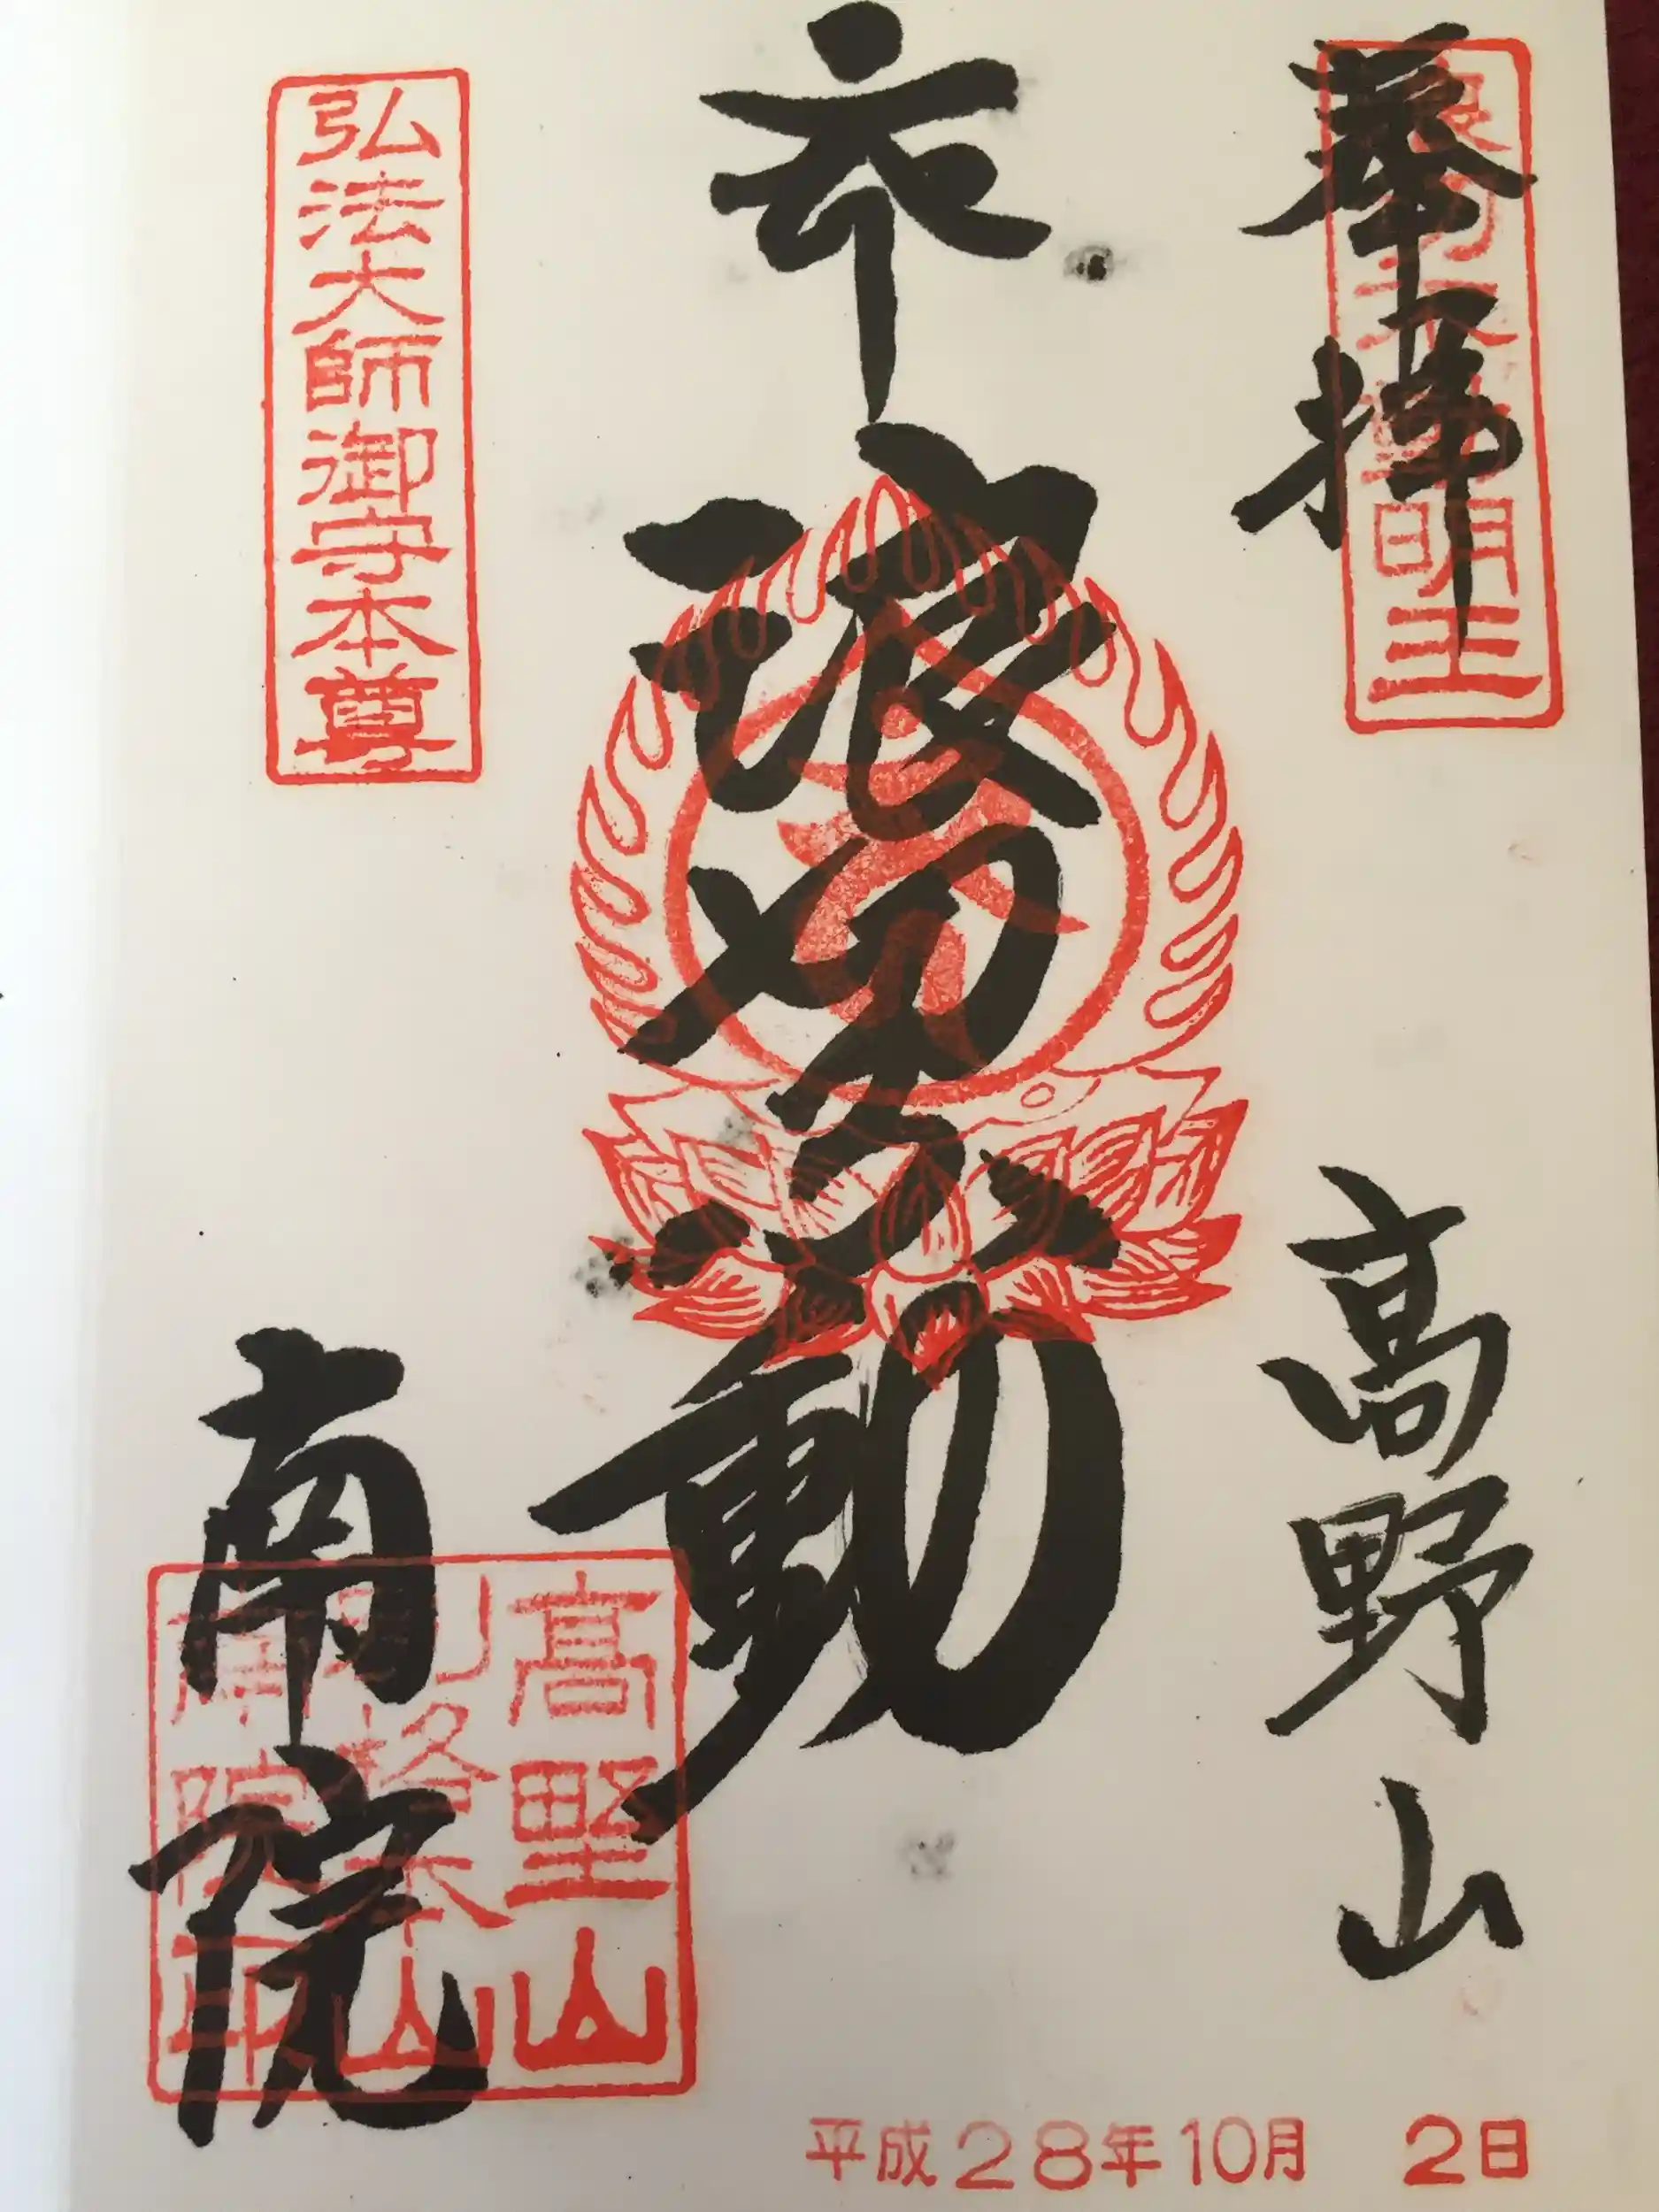 奉拝
浪切不動明王
高野山
浪切不動
弘法大師御守本尊
南院
高野山
別格本山
南院印
平成28年10月 2日